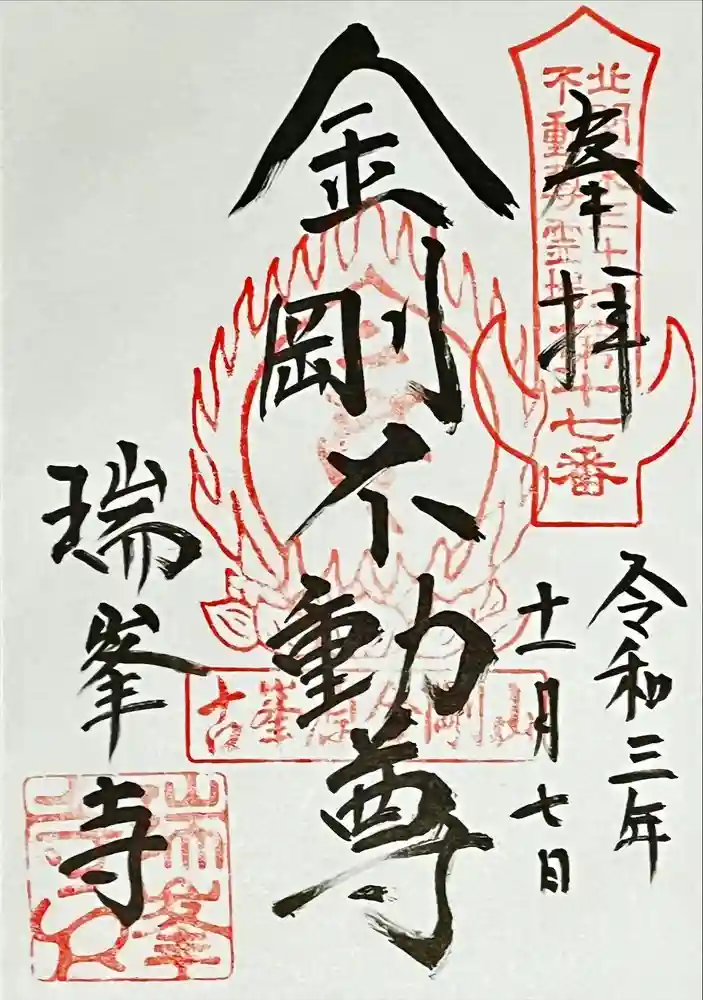 奉拝
北関東三十六
不動尊霊場第十七番
令和三年
十一月七日
金剛不動尊
古峯原金剛山
瑞峯寺
瑞峯
寺印